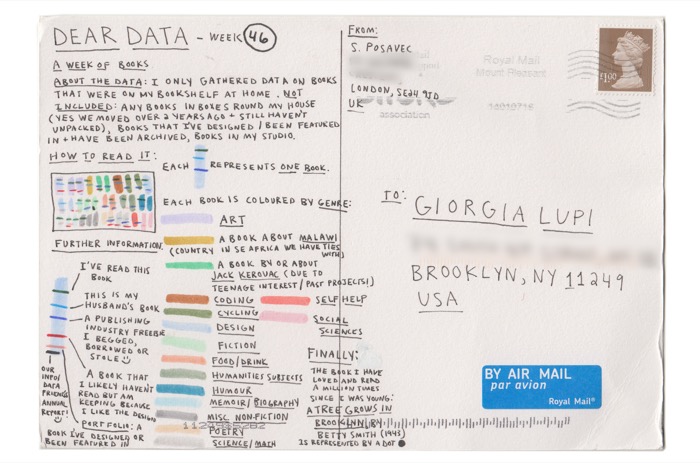 DEAR DATA - WEEK 46
A WEEK OF BOOKS
ABOUT THE DATA: I ONLY GATHERED DATA ON BOOKS
THAT WERE ON MY BOOKSHELF AT HOME. NOT
INCLUDED: ANY BOOKS IN BOXES ROUND MY HOUSE
(YES WE MOVED OVER 2 YEARS AGO + STILL HAVEN'T
UNPACKED), BOOKS THAT I'VE DESIGNED / BEEN FEATURED
IN + HAVE BEEN ARCHIVED, BOOKS IN MY STUDIO.
HOW TO READ IT:
EACH REPRESENTS ONE BOOK.
EACH BOOK IS COLOURED BY GENRE:
ART
A BOOK ABOUT MALAWI
(COUNTRY IN SE AFRICA WE HAVE TIES
WITH)
A BOOK BY OR ABOUT
JACK KEROUAC (DUE TO
TEENAGE INTEREST / PAST PROJECTS!)
CODING
SELF HELP
CYCLING
SOCIAL
SCIENCES
DESIGN
FICTION
FOOD/DRINK
HUMANITIES SUBJECTS
HUMOUR
MEMOIR/BIOGRAPHY
MISC NON-FICTION
POETRY
SCIENCE/MATH
FURTHER INFORMATION:
I'VE READ THIS
BOOK
THIS IS MY
HUSBAND'S BOOK
A PUBLISHING
INDUSTRY FREEBIE
I BEGGED,
BORROWED OR
STOLE
A BOOK THAT
I LIKELY HAVEN'T
READ BUT AM
KEEPING BECAUSE
I LIKE THE DESIGN
PORTFOLIO: A
BOOK I'VE DESIGNED OR
BEEN FEATURED IN
OUR INFO/
DATA
FRIEND'S
ANNUAL
REPORT!
FINALLY:
THE BOOK I HAVE
LOVED AND READ
A MILLION TIMES
SINCE I WAS YOUNG:
A TREE GROWS IN
BROOKLYN BY
BETTY SMITH (1943)
IS REPRESENTED BY A DOT
FROM:
S. POSAVEC
LONDON, SE24 9JD
UK
association
Royal Mail
Mount Pleasant
£1.00
TO:
GIORGIA LUPI
BROOKLYN, NY 11249
USA
BY AIR MAIL
par avion
Royal Mail®